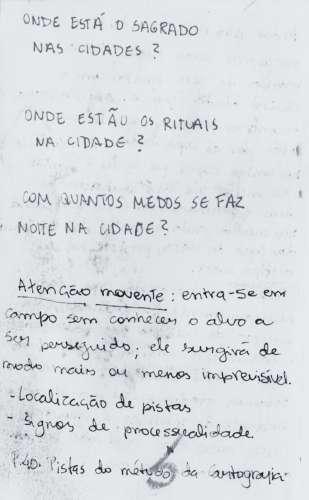 ONDE ESTÁ O SAGRADO
NAS CIDADES?
ONDE ESTÃO OS RITUAIS
NA CIDADE?
COM QUANTOS MEDOS SE FAZ
NOITE NA CIDADE?
Atenção movente: entra-se em
campo sem conhecer o alvo a
ser perseguido; ele surgirá de
modo mais ou menos imprevisível.
- Localização de pistas
- Signos de processualidade
P.40. Pistas do método da cartografia